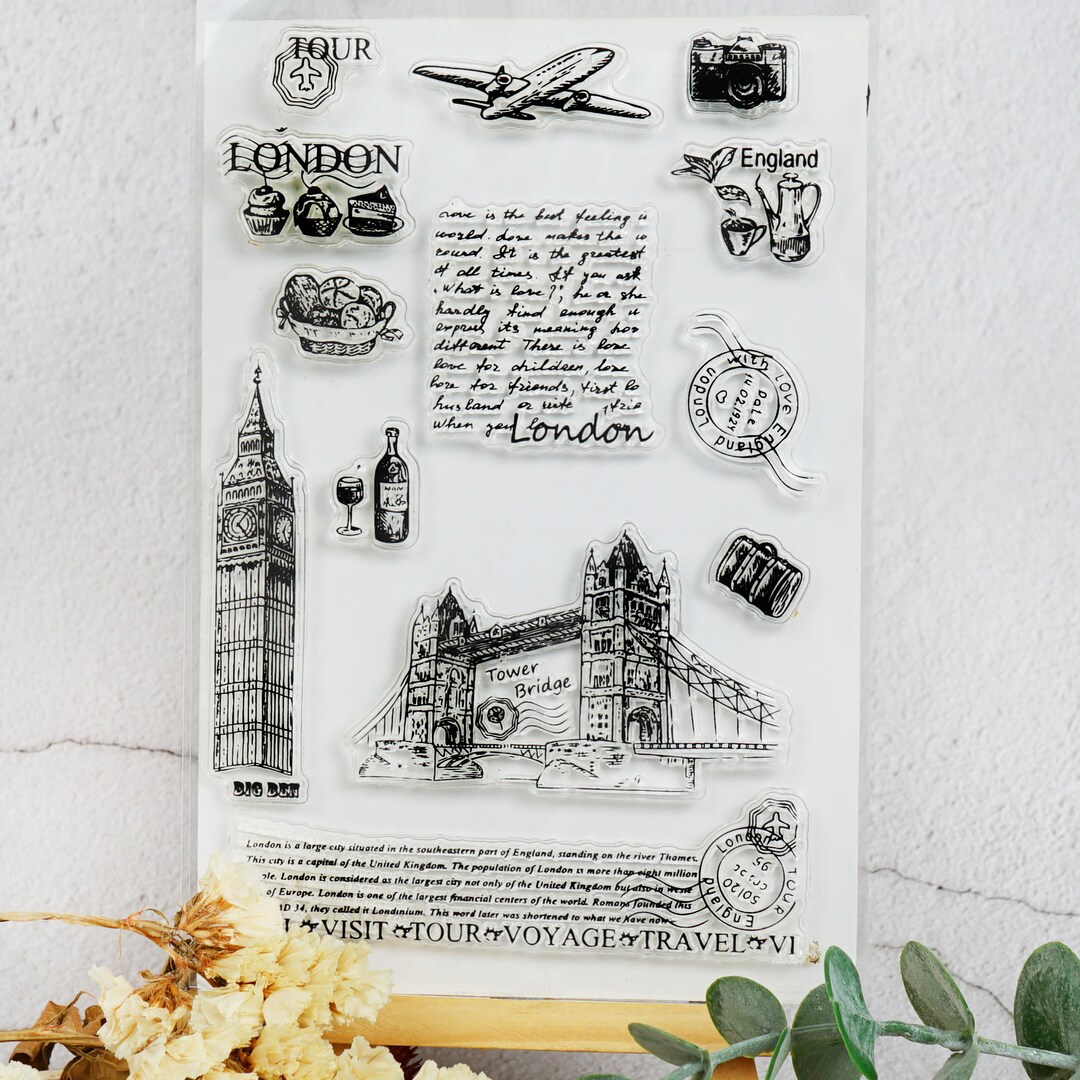 TOUR
LONDON
England
Love is the best feeling is
world. Love makes the w
round. It is the greatest
of all times. If you ask
"What is love?", he or she
hardly find enough w
express its meaning has
different There is love
love for children, love
love for friends, first lo
husband or wife, frie
When you
London
London with LOVE England
Date
14 02.192Y
Tower
Bridge
BIG BEN
London is a large city situated in the southeastern part of England, standing on the river Thames.
This city is a capital of the United Kingdom. The population of London is more than eight million
ple. London is considered as the largest city not only of the United Kingdom but also in weste
of Europe. London is one of the largest financial centers of the world. Romans founded this
AD 34, they called it Londinium. This word later was shortened to what we have now.
London
TOUR
England
50120
95
L VISIT TOUR VOYAGE TRAVEL VI